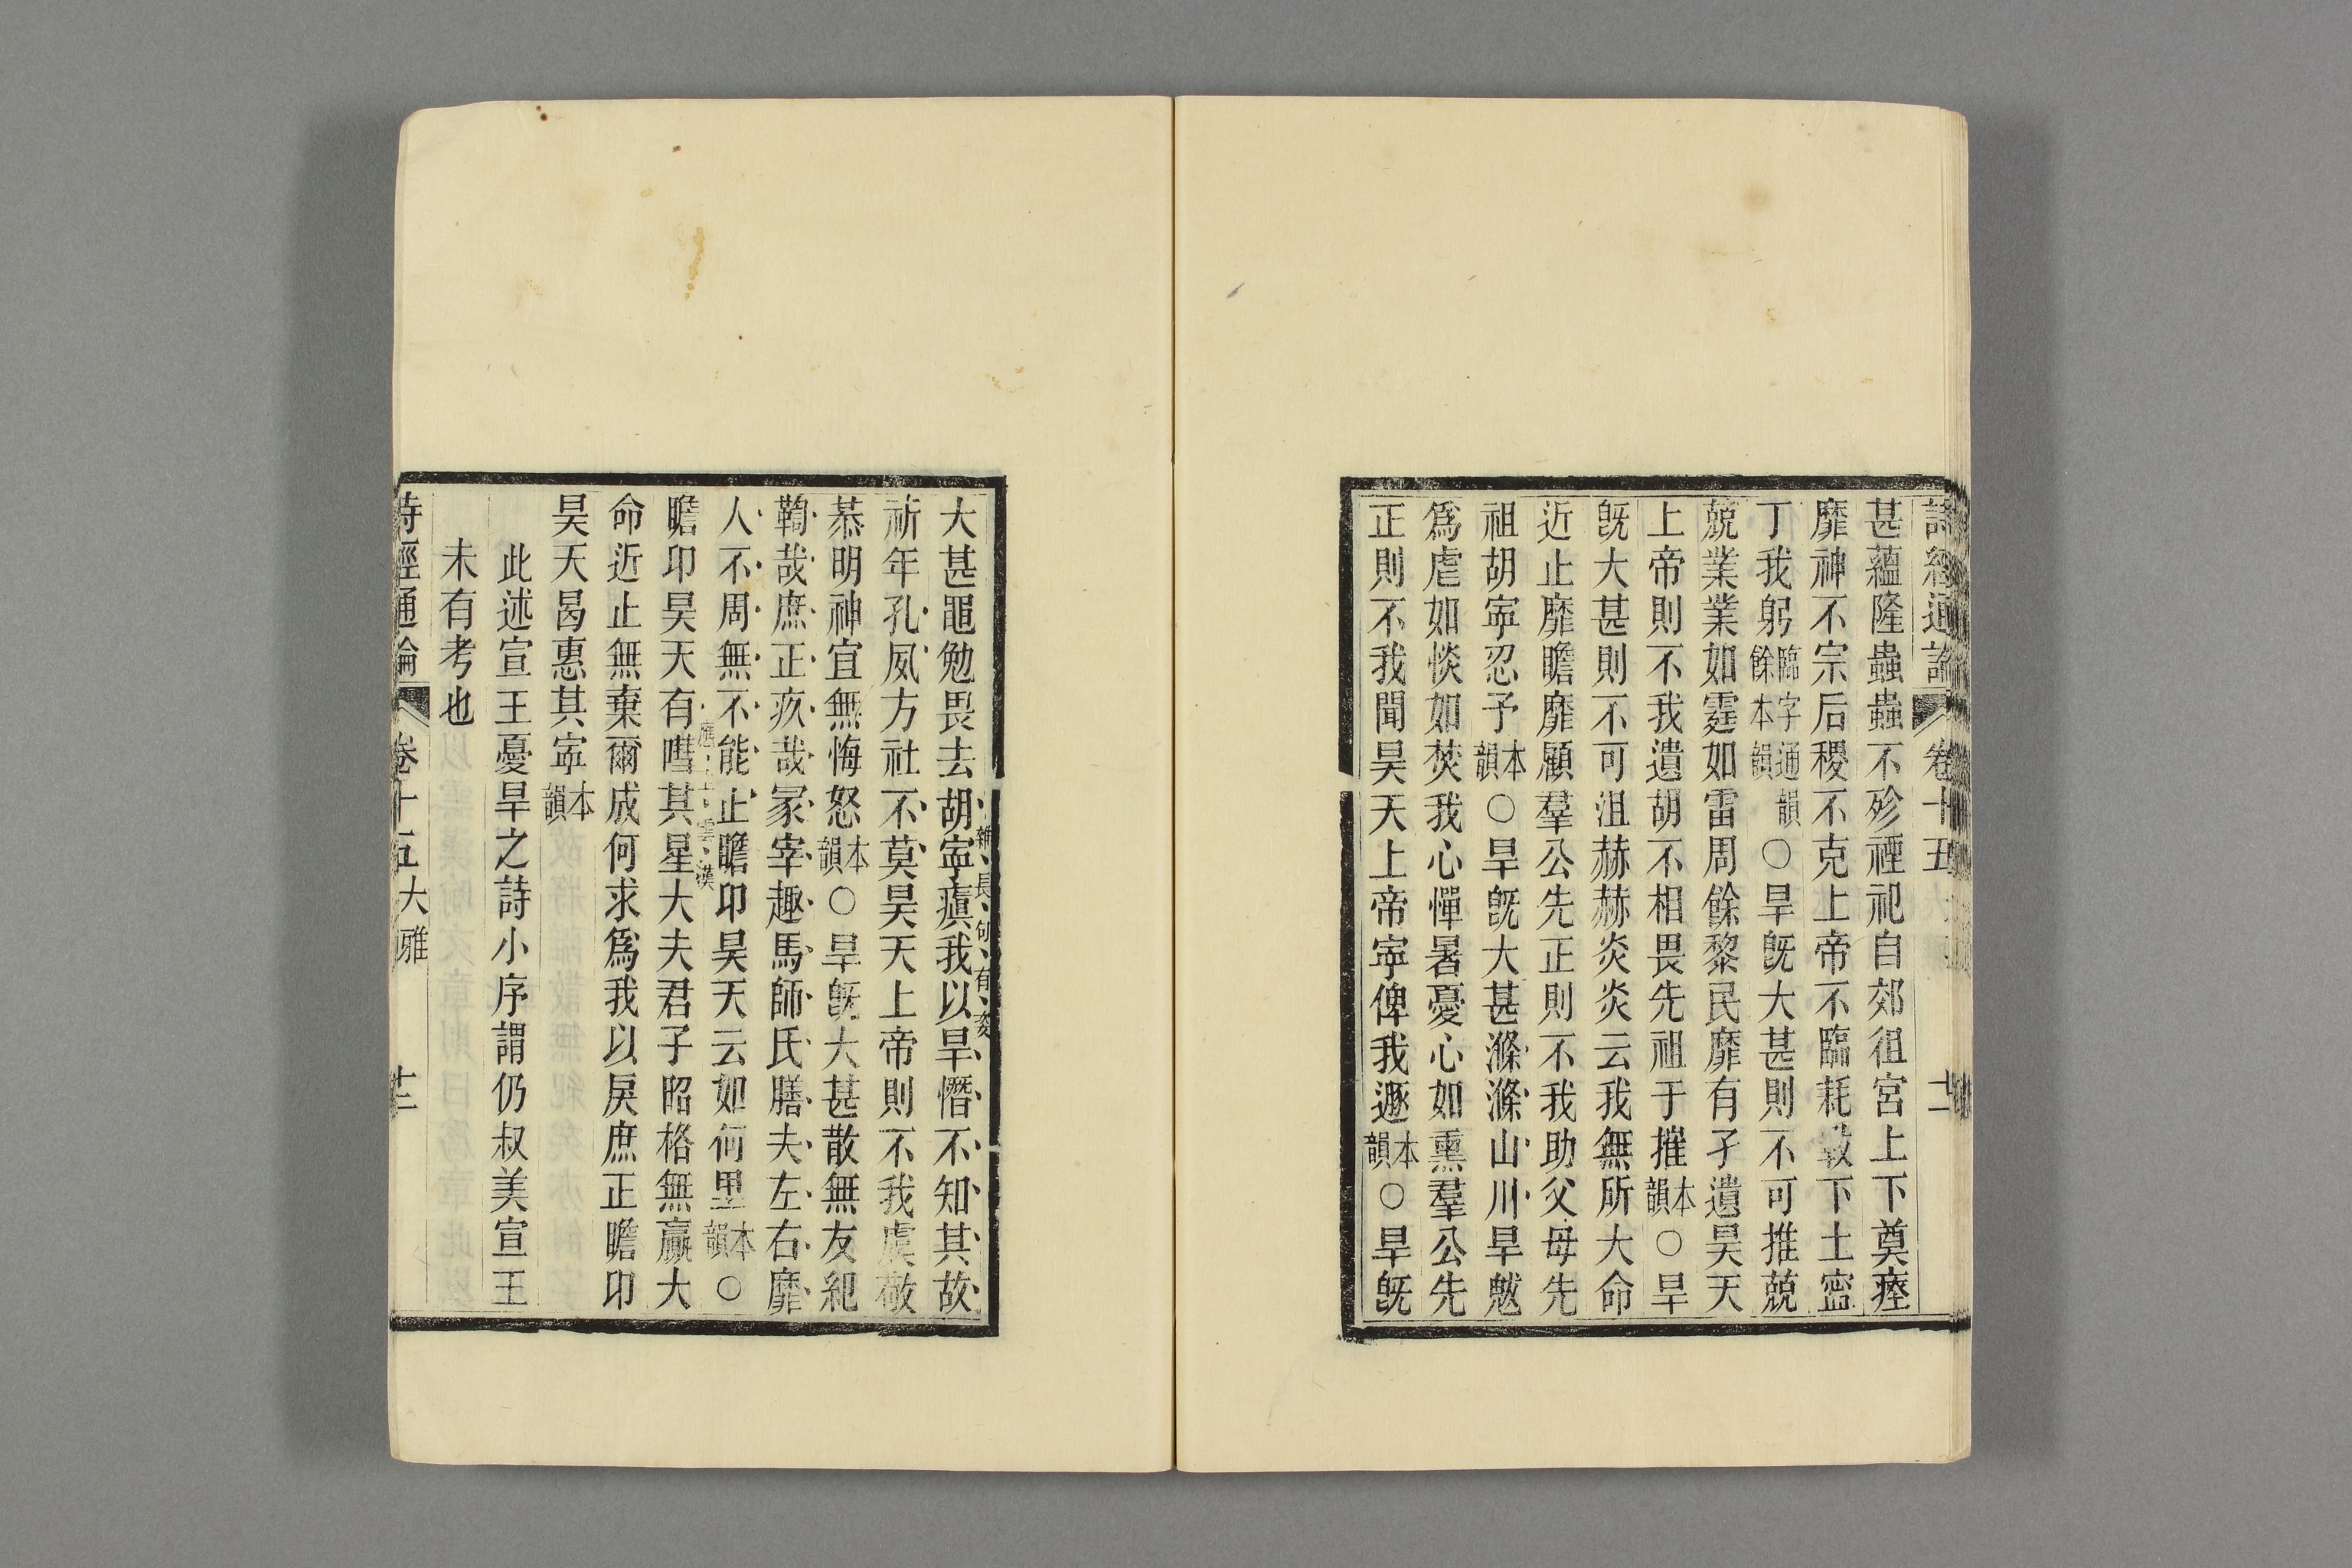 詩經通論 卷十五 十二
甚蘊隆蟲蟲不殄禋祀自郊徂宮上下奠瘞
靡神不宗后稷不克上帝不臨耗斁下土寍
丁我躬臨字通韻餘本韻○旱旣大甚則不可推兢
兢業業如霆如雷周餘黎民靡有孑遺昊天
上帝則不我遺胡不相畏先祖于摧本韻○旱
旣大甚則不可沮赫赫炎炎云我無所大命
近止靡瞻靡顧羣公先正則不我助父母先
祖胡寍忍予本韻○旱旣大甚滌滌山川旱魃
爲虐如惔如焚我心憚暑憂心如熏羣公先
正則不我聞昊天上帝寍俾我遯本韻○旱旣
大甚黽勉畏去胡寍瘨我以旱憯不知其故
雜長句有姿
祈年孔夙方社不莫昊天上帝則不我虞敬
恭明神宜無悔怒本韻○旱旣大甚散無友紀
鞫哉庶正疚哉冢宰趣馬師氏膳夫左右靡
人不周無不能止瞻卬昊天云如何里本韻○
應上雲漢
瞻卬昊天有嘒其星大夫君子昭格無贏大
命近止無棄爾成何求爲我以戾庶正瞻卬
昊天曷惠其寍本韻
此述宣王憂旱之詩小序謂仍叔美宣王
未有考也
詩經通論 卷十五 大雅 十二